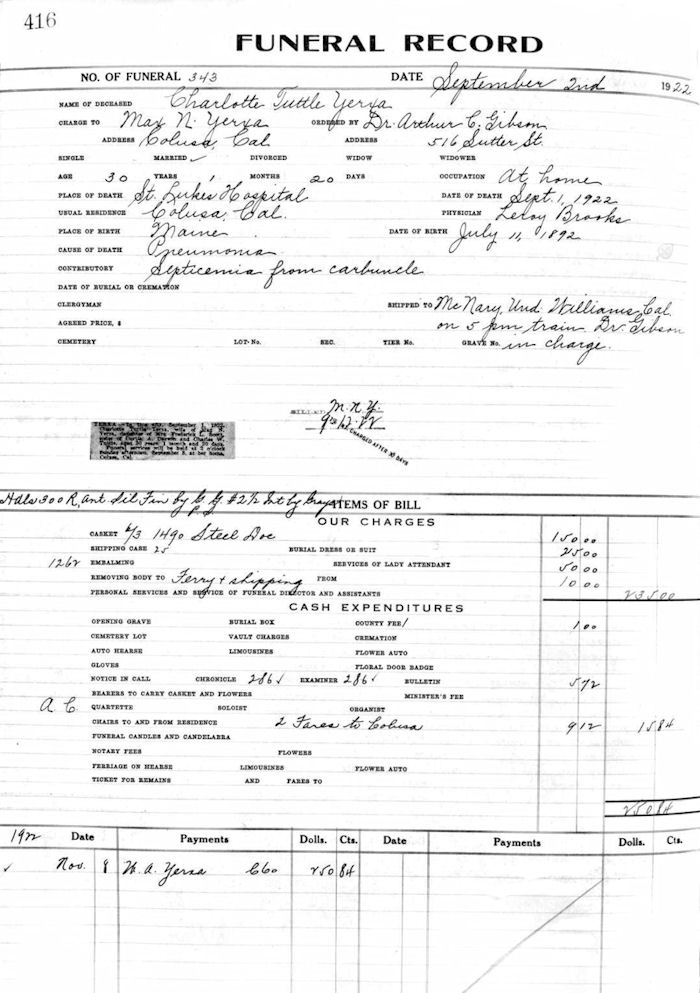 416
FUNERAL RECORD
NO. OF FUNERAL 343 DATE September 2nd 1922
NAME OF DECEASED Charlotte Tuttle Yerxa
CHARGE TO Max N. Yerxa ORDERED BY Dr. Arthur C. Gibson
ADDRESS Colusa, Cal ADDRESS 516 Sutter St.
SINGLE MARRIED ✓ DIVORCED WIDOW WIDOWER
AGE 30 YEARS 1 MONTHS 20 DAYS OCCUPATION At home
PLACE OF DEATH St. Lukes Hospital DATE OF DEATH Sept. 1, 1922
USUAL RESIDENCE Colusa, Cal. PHYSICIAN Leroy Brooks
PLACE OF BIRTH Maine DATE OF BIRTH July 11, 1892
CAUSE OF DEATH Pneumonia
CONTRIBUTORY Septicemia from carbuncle
DATE OF BURIAL OR CREMATION
CLERGYMAN SHIPPED TO McNary, Und. Williams, Cal.
AGREED PRICE, $ on 5 pm train Dr. Gibson
CEMETERY LOT-No. SEC. TIER No. GRAVE No. in charge.
BILLED M.N.Y.
9-12-22
CHARGED AFTER 30 DAYS
ITEMS OF BILL
OUR CHARGES
CASKET 6/3 1490 Steel Doe 150 00
SHIPPING CASE 25 BURIAL DRESS OR SUIT 25 00
1262 EMBALMING SERVICES OF LADY ATTENDANT 50 00
REMOVING BODY TO Ferry + shipping FROM 10 00
PERSONAL SERVICES AND SERVICE OF FUNERAL DIRECTOR AND ASSISTANTS 235 00
CASH EXPENDITURES
OPENING GRAVE BURIAL BOX COUNTY FEE / 1 00
CEMETERY LOT VAULT CHARGES CREMATION
AUTO HEARSE LIMOUSINES FLOWER AUTO
GLOVES FLORAL DOOR BADGE
NOTICE IN CALL CHRONICLE 286 ✓ EXAMINER 286 ✓ BULLETIN 5 72
BEARERS TO CARRY CASKET AND FLOWERS MINISTER'S FEE
A C QUARTETTE SOLOIST ORGANIST
CHAIRS TO AND FROM RESIDENCE 2 Fares to Colusa 9 12 15 84
FUNERAL CANDLES AND CANDELABRA
NOTARY FEES FLOWERS
FERRIAGE ON HEARSE LIMOUSINES FLOWER AUTO
TICKET FOR REMAINS AND FARES TO
250 84
1922 Date Payments Dolls. Cts. Date Payments Dolls. Cts.
✓ Nov. 8 W. A. Yerxa 660 250 84